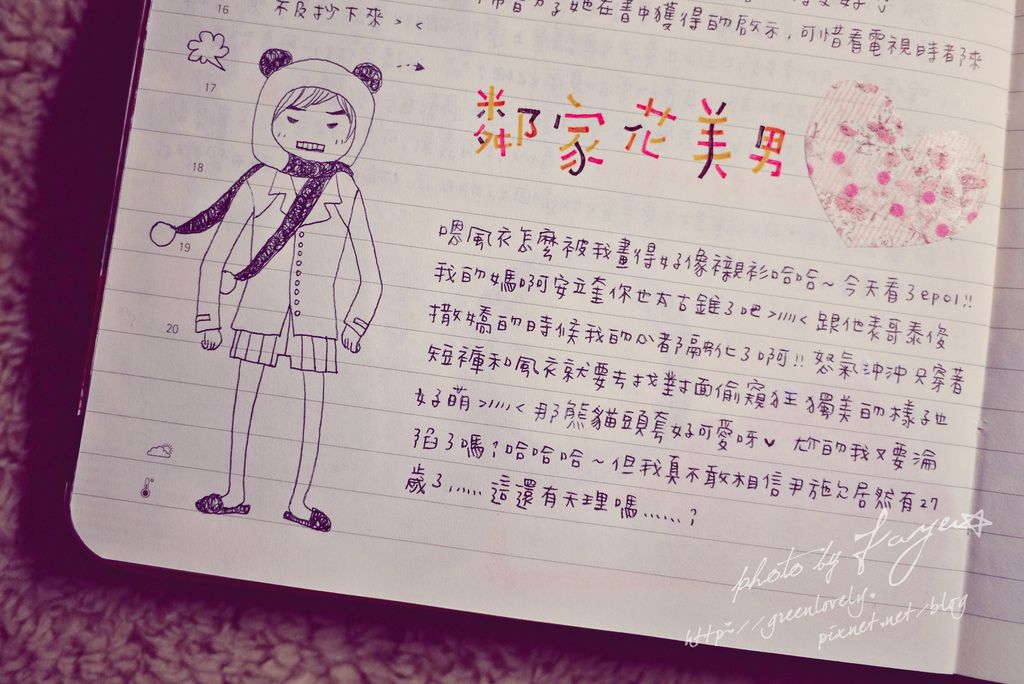 她在書中獲得的啟示，可惜看電視時都來
不及抄下來> <
16
17
18
19
20
鄰家花美男
嗯風衣怎麼被我畫得好像襯衫哈哈~今天看了ep01!!
我的媽啊安立奎你也太古錐了吧>///<跟他表哥泰俊
撒嬌的時候我的心都隔夠化了啊!!怒氣沖沖只穿著
短褲和風衣就要去找對面偷窺狂獨美的樣子也
好萌>///<那熊貓頭套好可愛呀♥ 尬的我又要淪
陷了嗎?哈哈哈~但我真不敢相信尹施允居然有27
歲了……這還有天理嗎……?
photo by Faye☆
http://greenlovely.
pixnet.net/blog